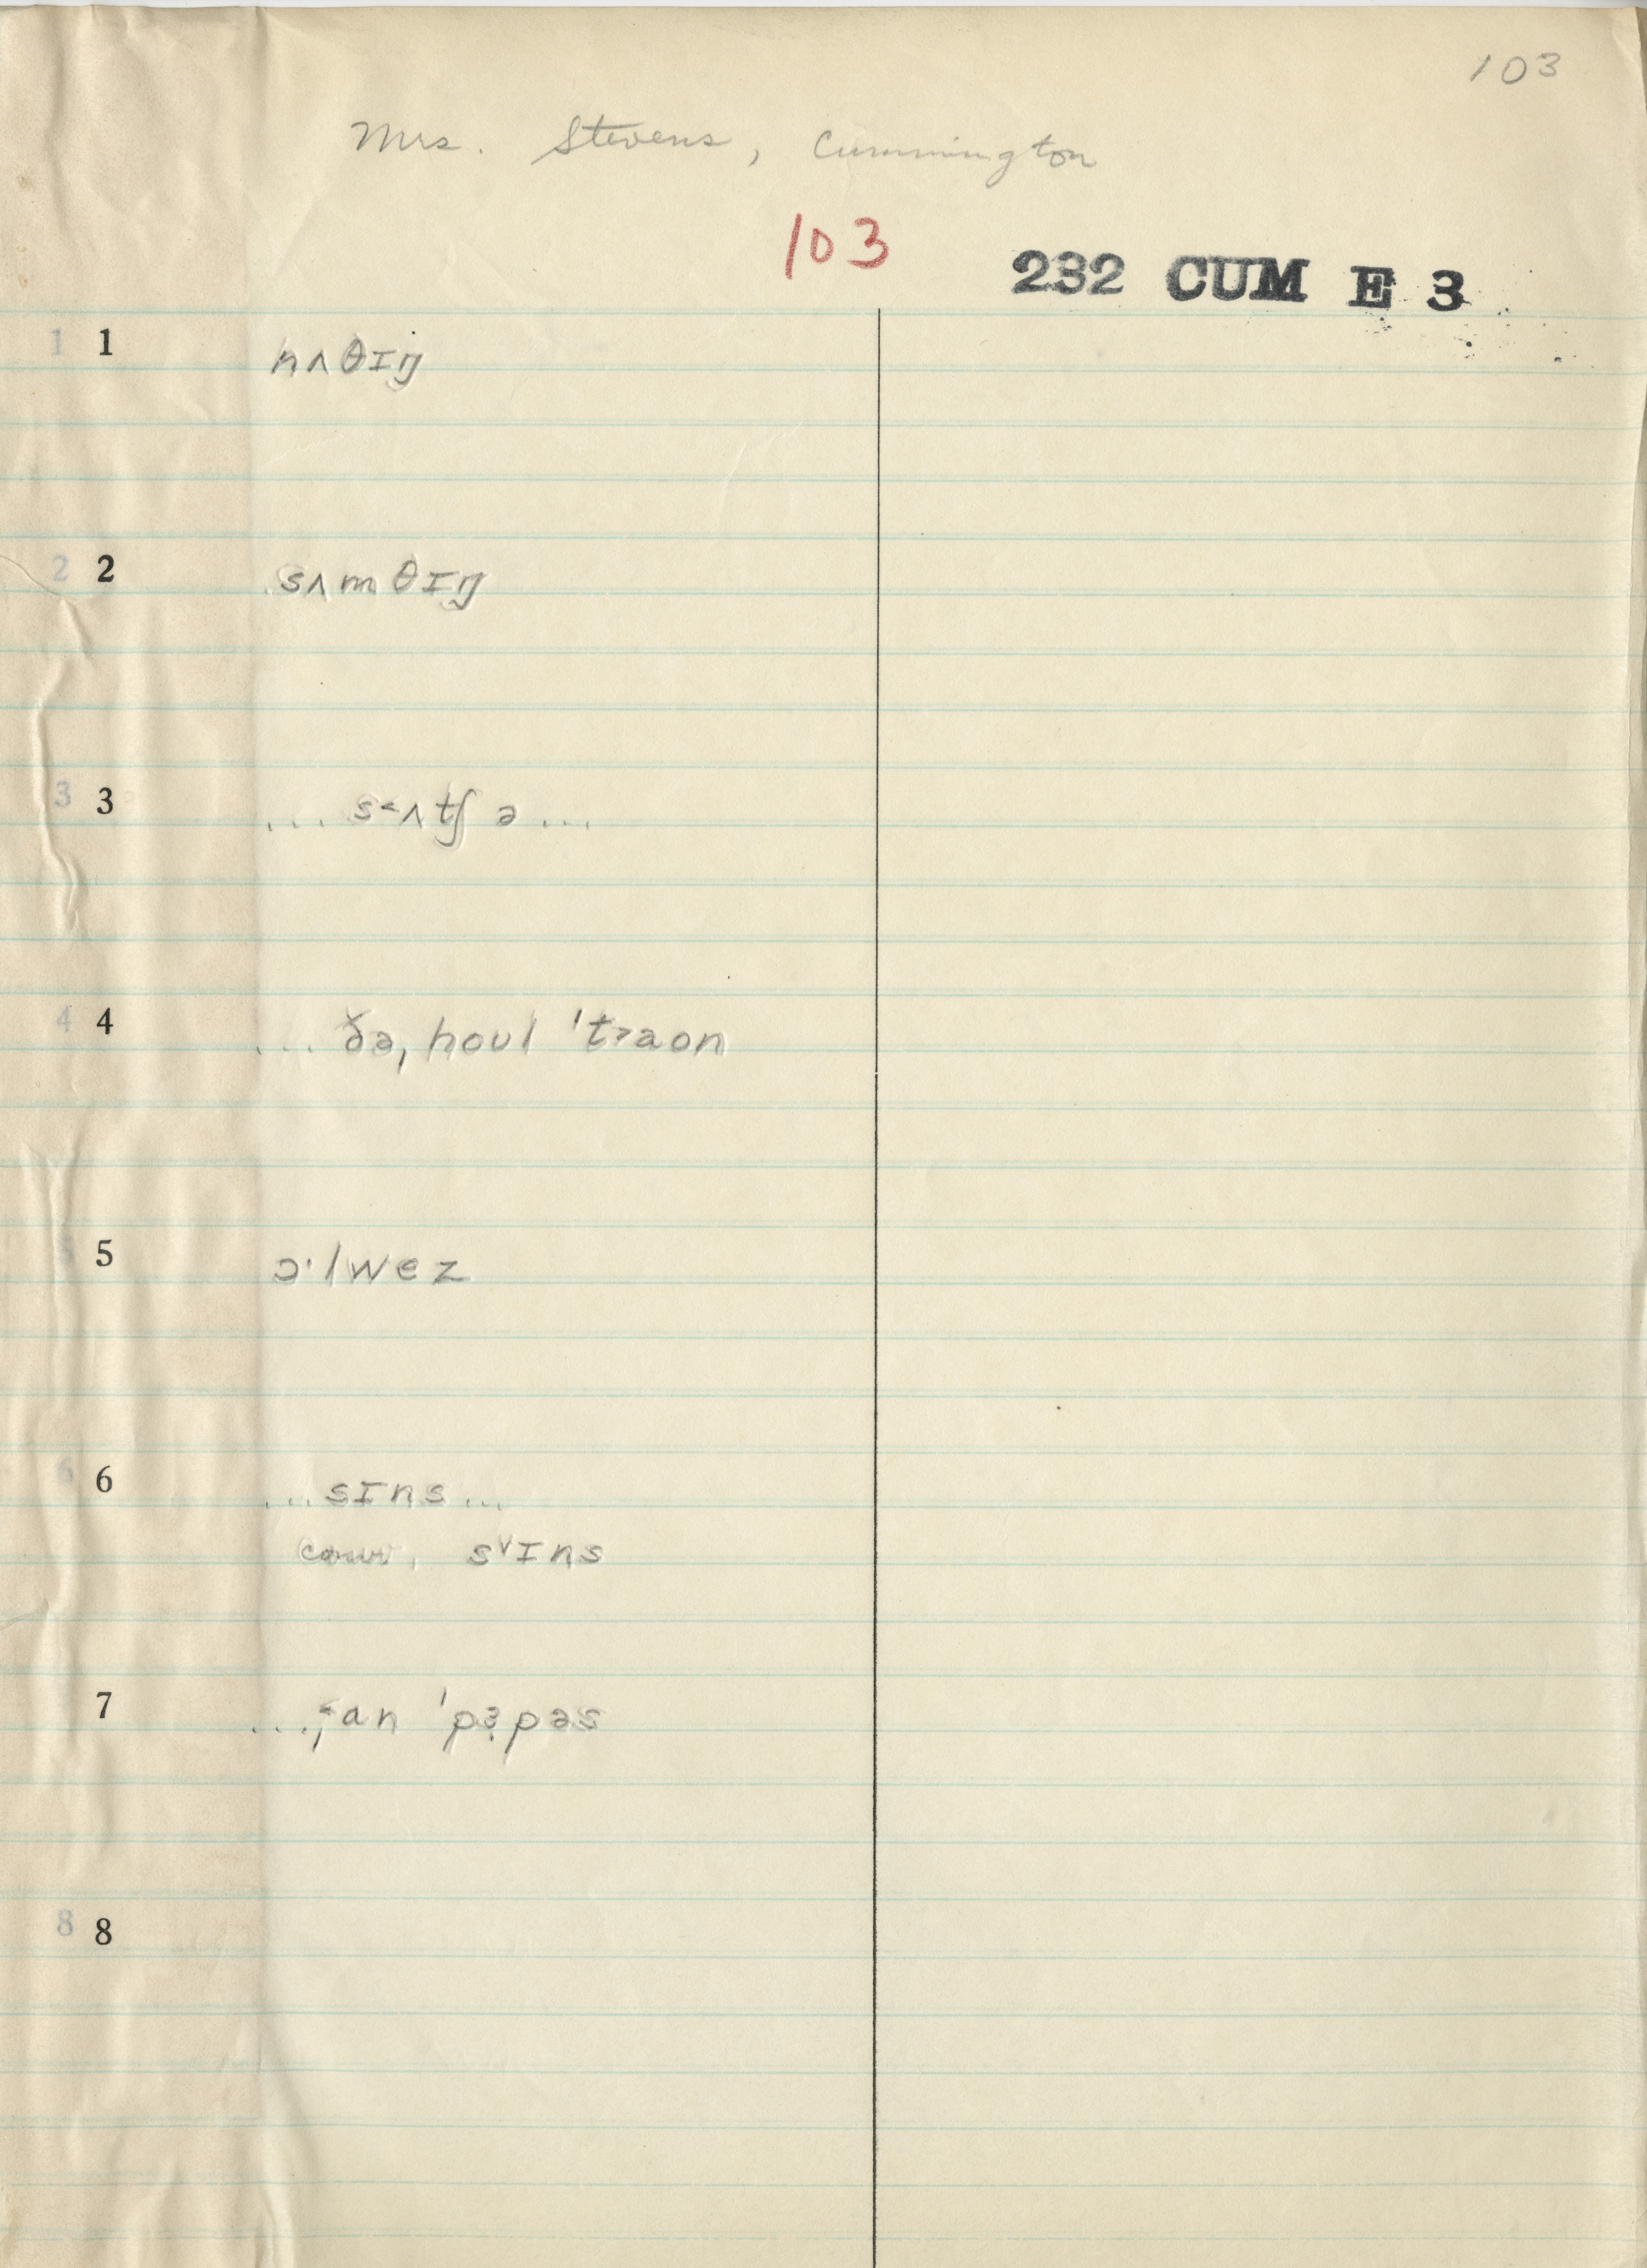 103
Mrs. Stevens, Cummington
103 232 CUM E 3
1 nʌθɪŋ
2 sʌmθɪŋ
3 ... s˂ʌtʃ ə ...
4 ... ðə, hoʊl 'tɹaon
5 ɔ·lwez
6 ... sɪns ...
sᵛɪns
7 ... 'pɜ̣pəs
8